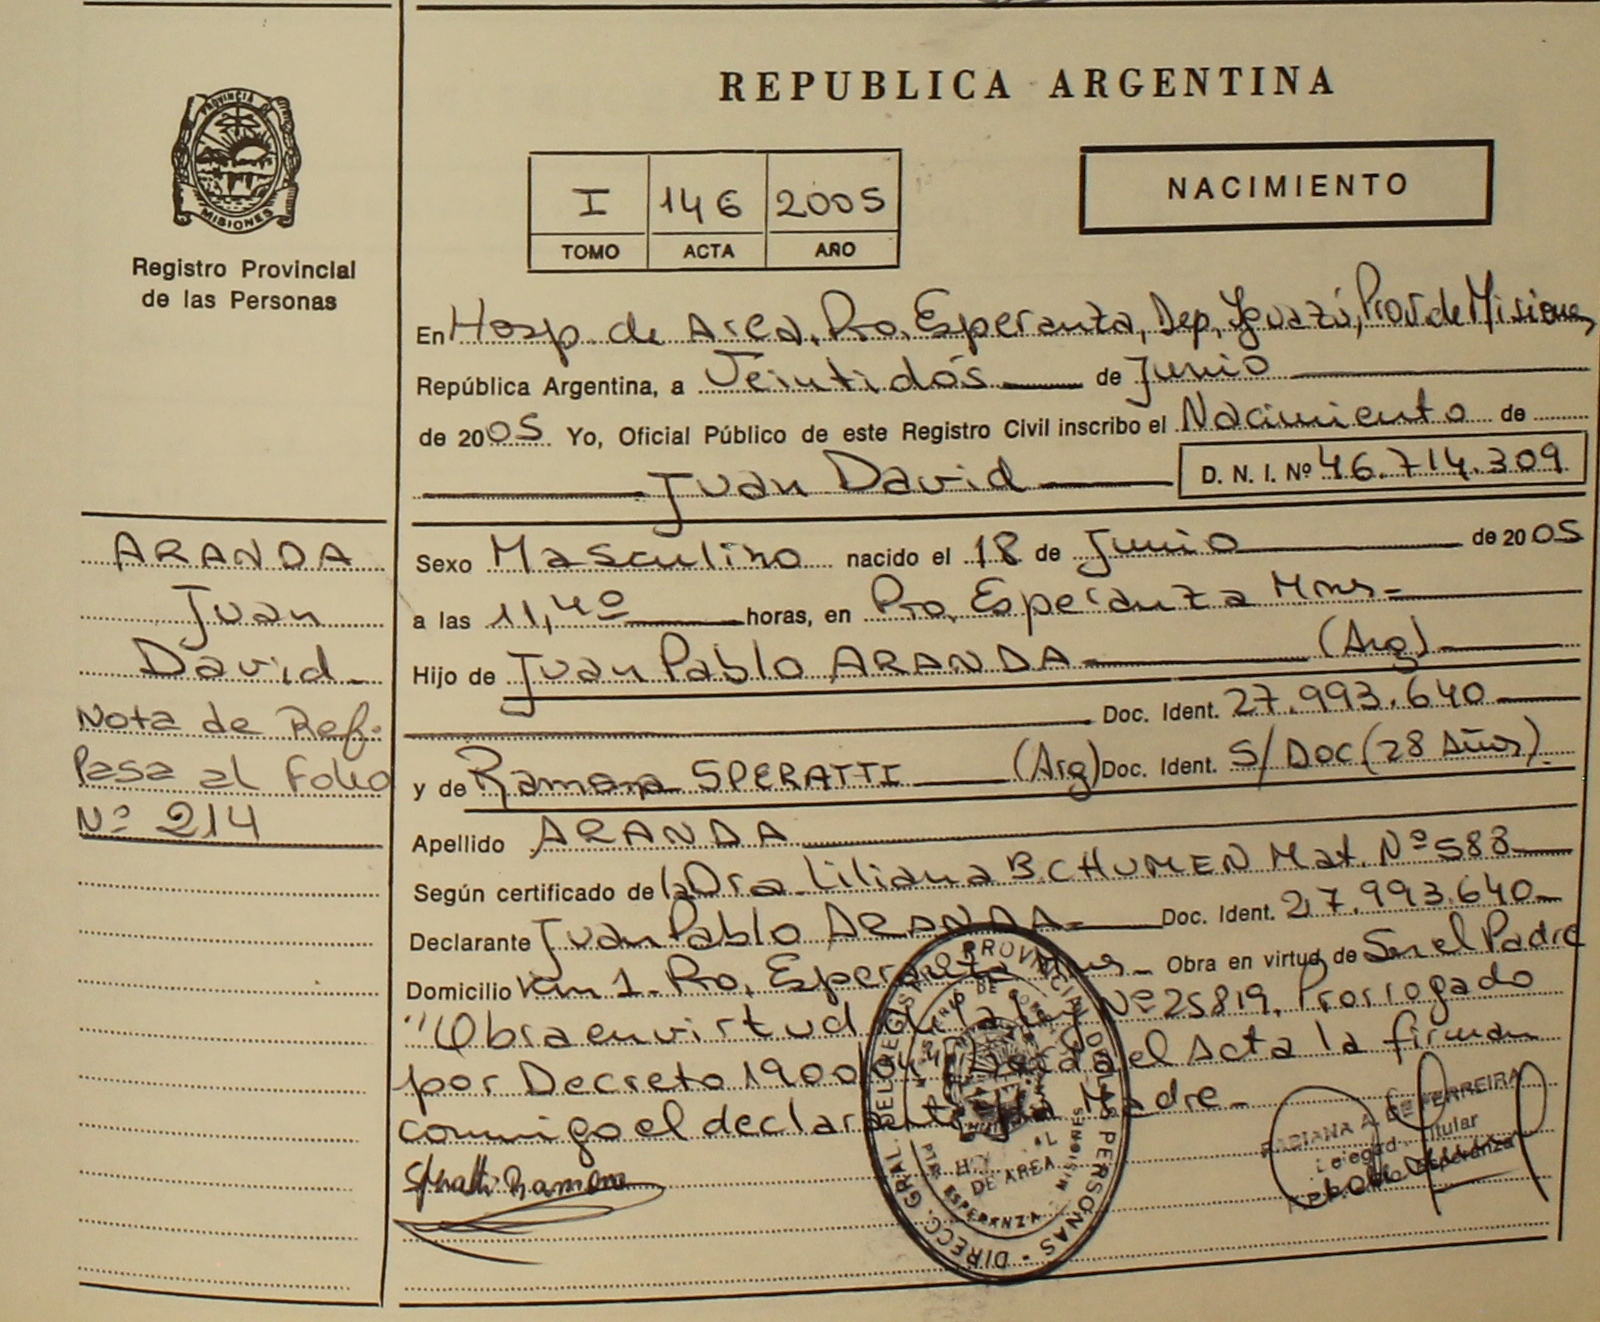 PROVINCIA DE
MISIONES
Registro Provincial
de las Personas
REPUBLICA ARGENTINA
I 146 2005
TOMO ACTA AÑO
NACIMIENTO
En Hosp. de Area, Pto. Esperanza, Dep. Iguazú, Prov de Misiones,
República Argentina, a Veintidós de Junio
de 2005 Yo, Oficial Público de este Registro Civil inscribo el Nacimiento de
Juan David D. N. I. Nº 46.714.309
Sexo Masculino nacido el 18 de Junio de 2005
a las 11,40 horas, en Pto. Esperanza Mnes=
Hijo de Juan Pablo ARANDA (Arg)
Doc. Ident. 27.993.640
y de Ramona SPERATTI (Arg) Doc. Ident. S/Doc (28 Años)
Apellido ARANDA
Según certificado de la Dra. Liliana B. CHUMEN Mat. Nº 588
Declarante Juan Pablo ARANDA= Doc. Ident. 27.993.640
Domicilio Km 1. Pto. Esperanza Mnes Obra en virtud de Ser el Padre
"Obra en virtud de la Ley Nº 25819, Prorrogado
por Decreto 1900/04" Leida el Acta la firman
conmigo el declarante y la Madre
Speratti Ramona
ARANDA
Juan
David
Nota de Ref.
Pasa al Folio
Nº 214
DIRECC. GRAL. DEL REGISTRO PROVINCIAL DE LAS PERSONAS
DE AREA
ESPERANZA - MISIONES
FABIANA A. DE FERREIRA
Delegada Titular
Esperanza